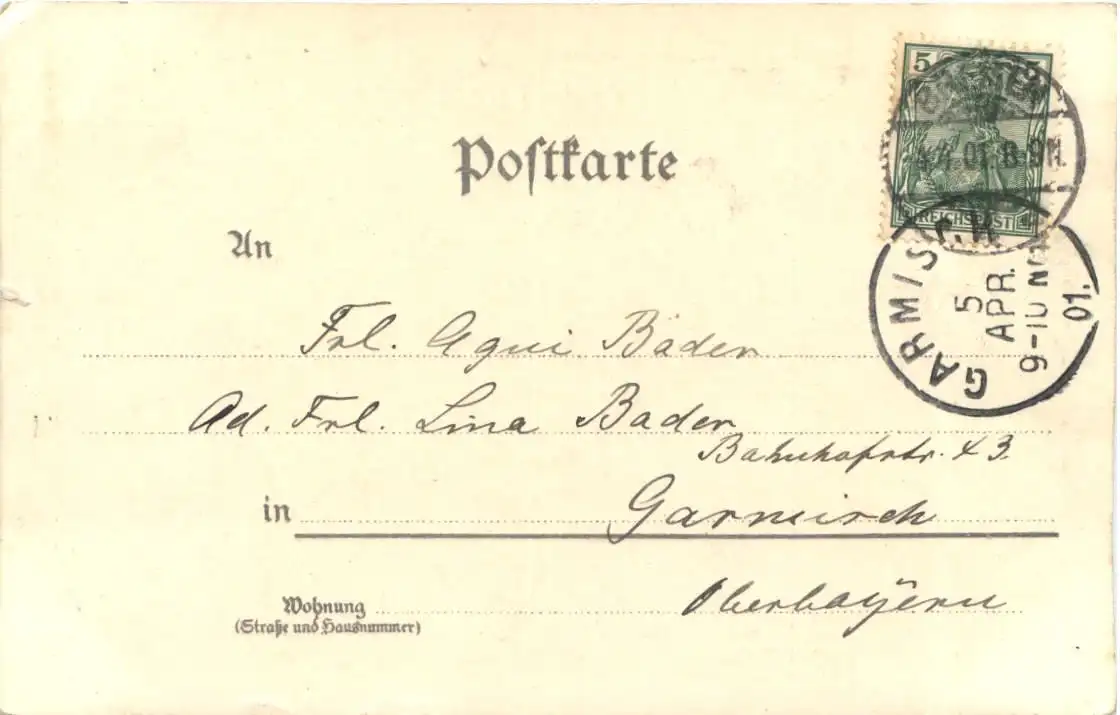 5
Postkarte
REICHSPOST
4.4.01.8-9N.
GARMISCH
5
APR.
9-10
01.
An
Frl. Agui Bader
Ad. Frl. Lina Bader
Bahnhofstr. 43.
in Garmisch
Wohnung Oberbayern
(Straße und Hausnummer)